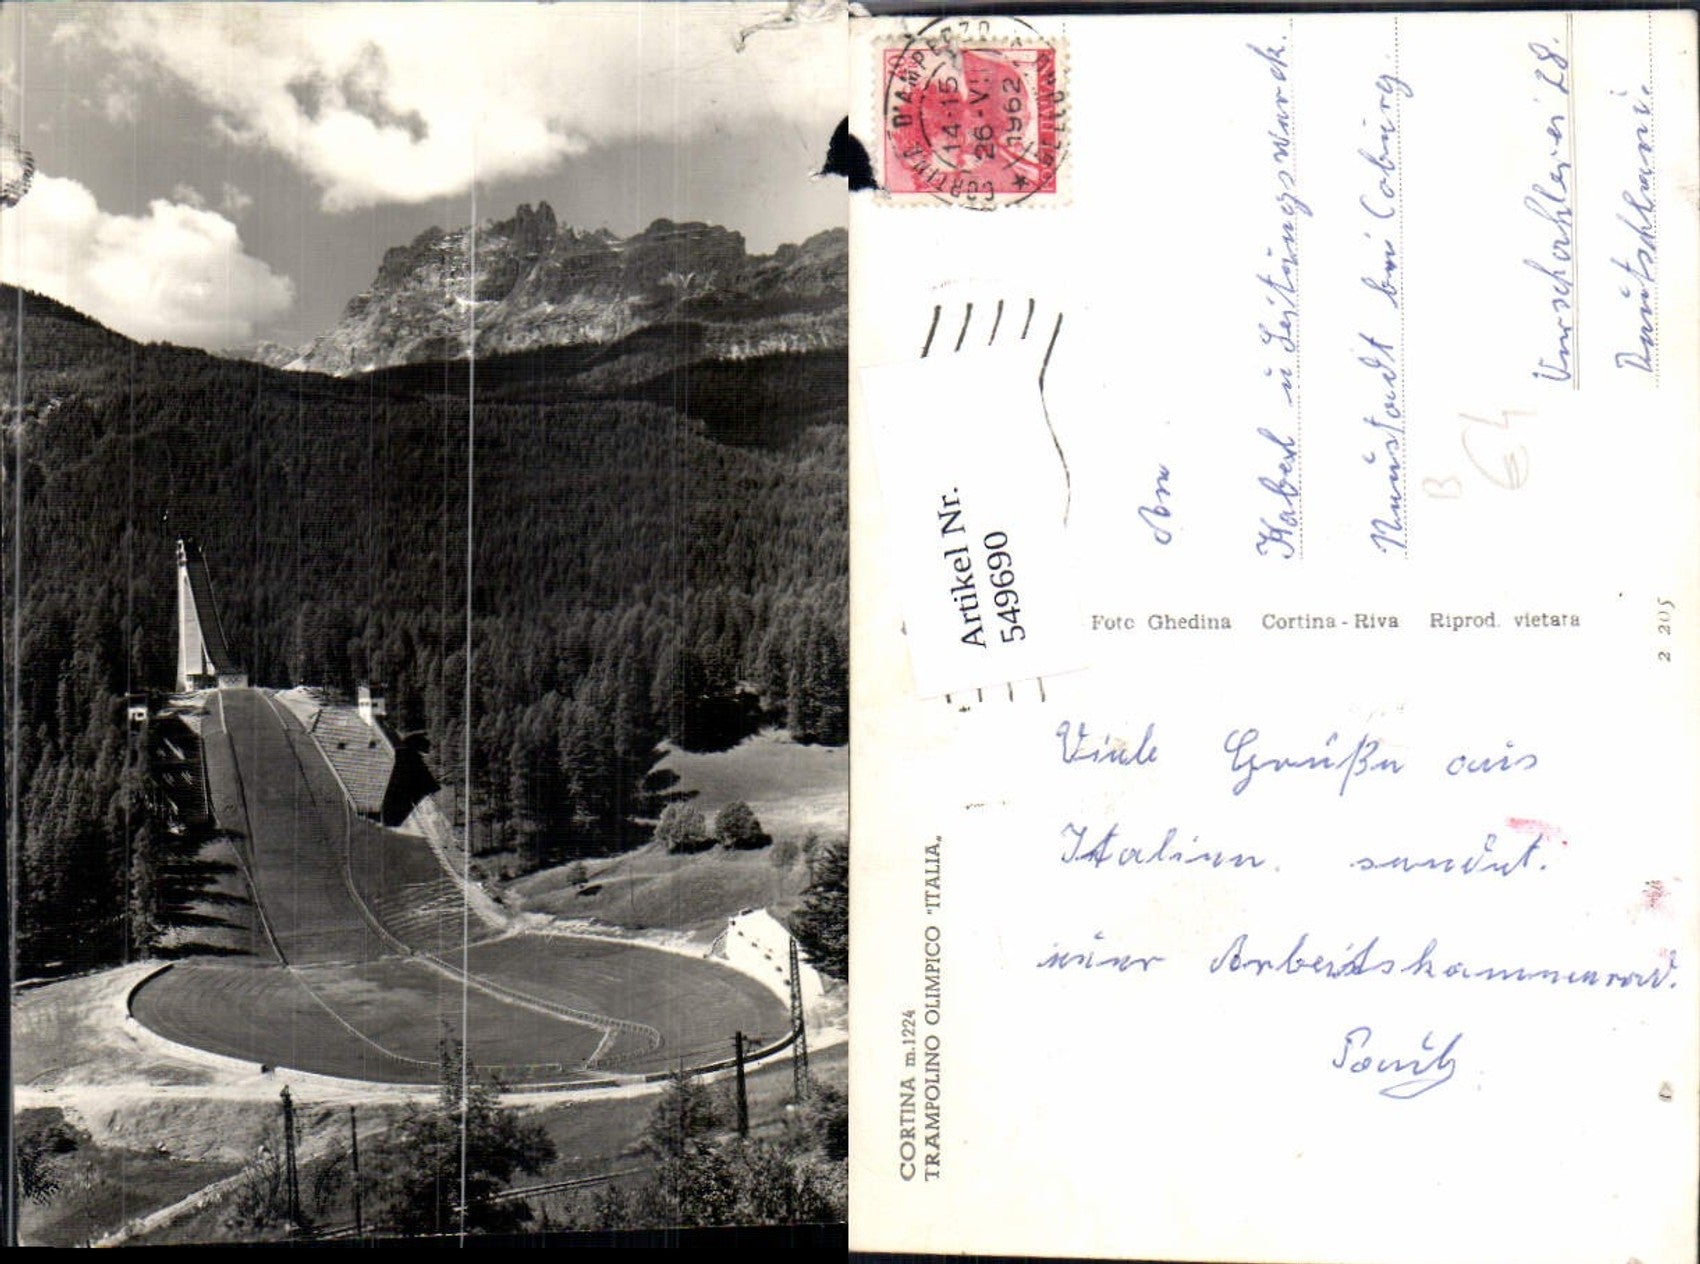 CORTINA D'AMPEZZO
14-15
26-V
1962
Artikel Nr.
549690
An
Kabel u Leitungswerk.
Neustadt bei Coburg.
28.
Deutschland.
B
64
Foto Ghedina Cortina - Riva Riprod. vietata
2 205
CORTINA m.1224
TRAMPOLINO OLIMPICO "ITALIA"
Viele Grüße aus
Italien. sendet.
euer Arbeitskammerad.